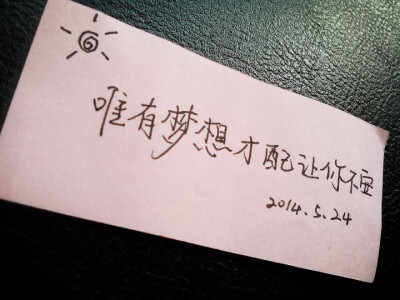 唯有梦想才配让你不安
2014.5.24